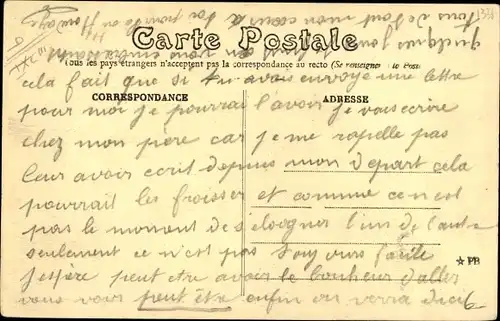 Carte Postale
Tous les pays étrangers n'acceptent pas la correspondance au recto (Se renseigner à la Poste)
CORRESPONDANCE
ADRESSE
cela fait que si tu avais envoyé une lettre
pour moi je pourrai l'avoir je vais ecrire
chez mon père car je me rapelle pas
leur avoir ecrit depuis mon depart cela
pourrait les froisser et comme ce n est
pas le moment de s eloogner l'un de l'autre
seulement ce n'est pas tous jours facile
j espère peut etre avoir le bonheur d'aller
vous voir peut être enfin on verra d'ici
★ FB
quelques jours
vous embrassant
tous de tout mon coeur